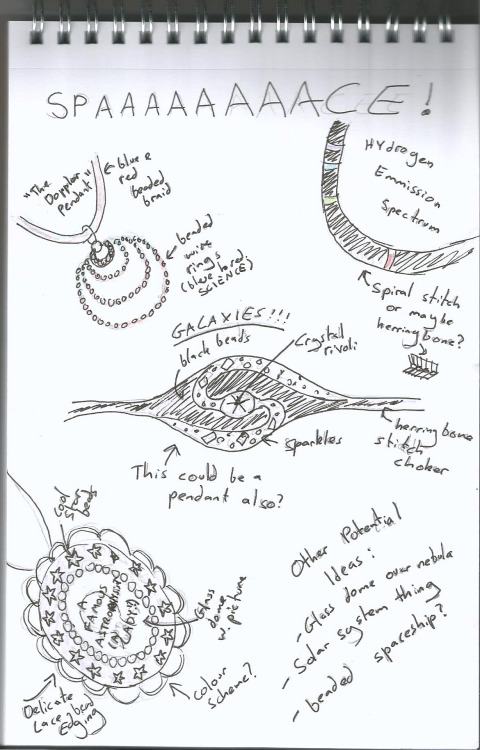 SPAAAAAAAAACE!
"The
Doppler
Pendant"
blue &
red
beaded
braid
beaded
wire
rings
(blue & red:
SCIENCE)
Hydrogen
Emmission
Spectrum
Spiral stitch
or maybe
herringbone?
GALAXIES!!!
black beads
Crystall
rivoli
sparkles
herringbone
stitch
choker
This could be a
pendant also?
cool
beads
A
FAMOUS
ASTRONOMER
LADY!)
Glass
dome
w. picture
colour
scheme?
Delicate
Lace/bead
Edging
Other Potential
Ideas:
- Glass dome over nebula
- Solar system thing
- beaded spaceship?